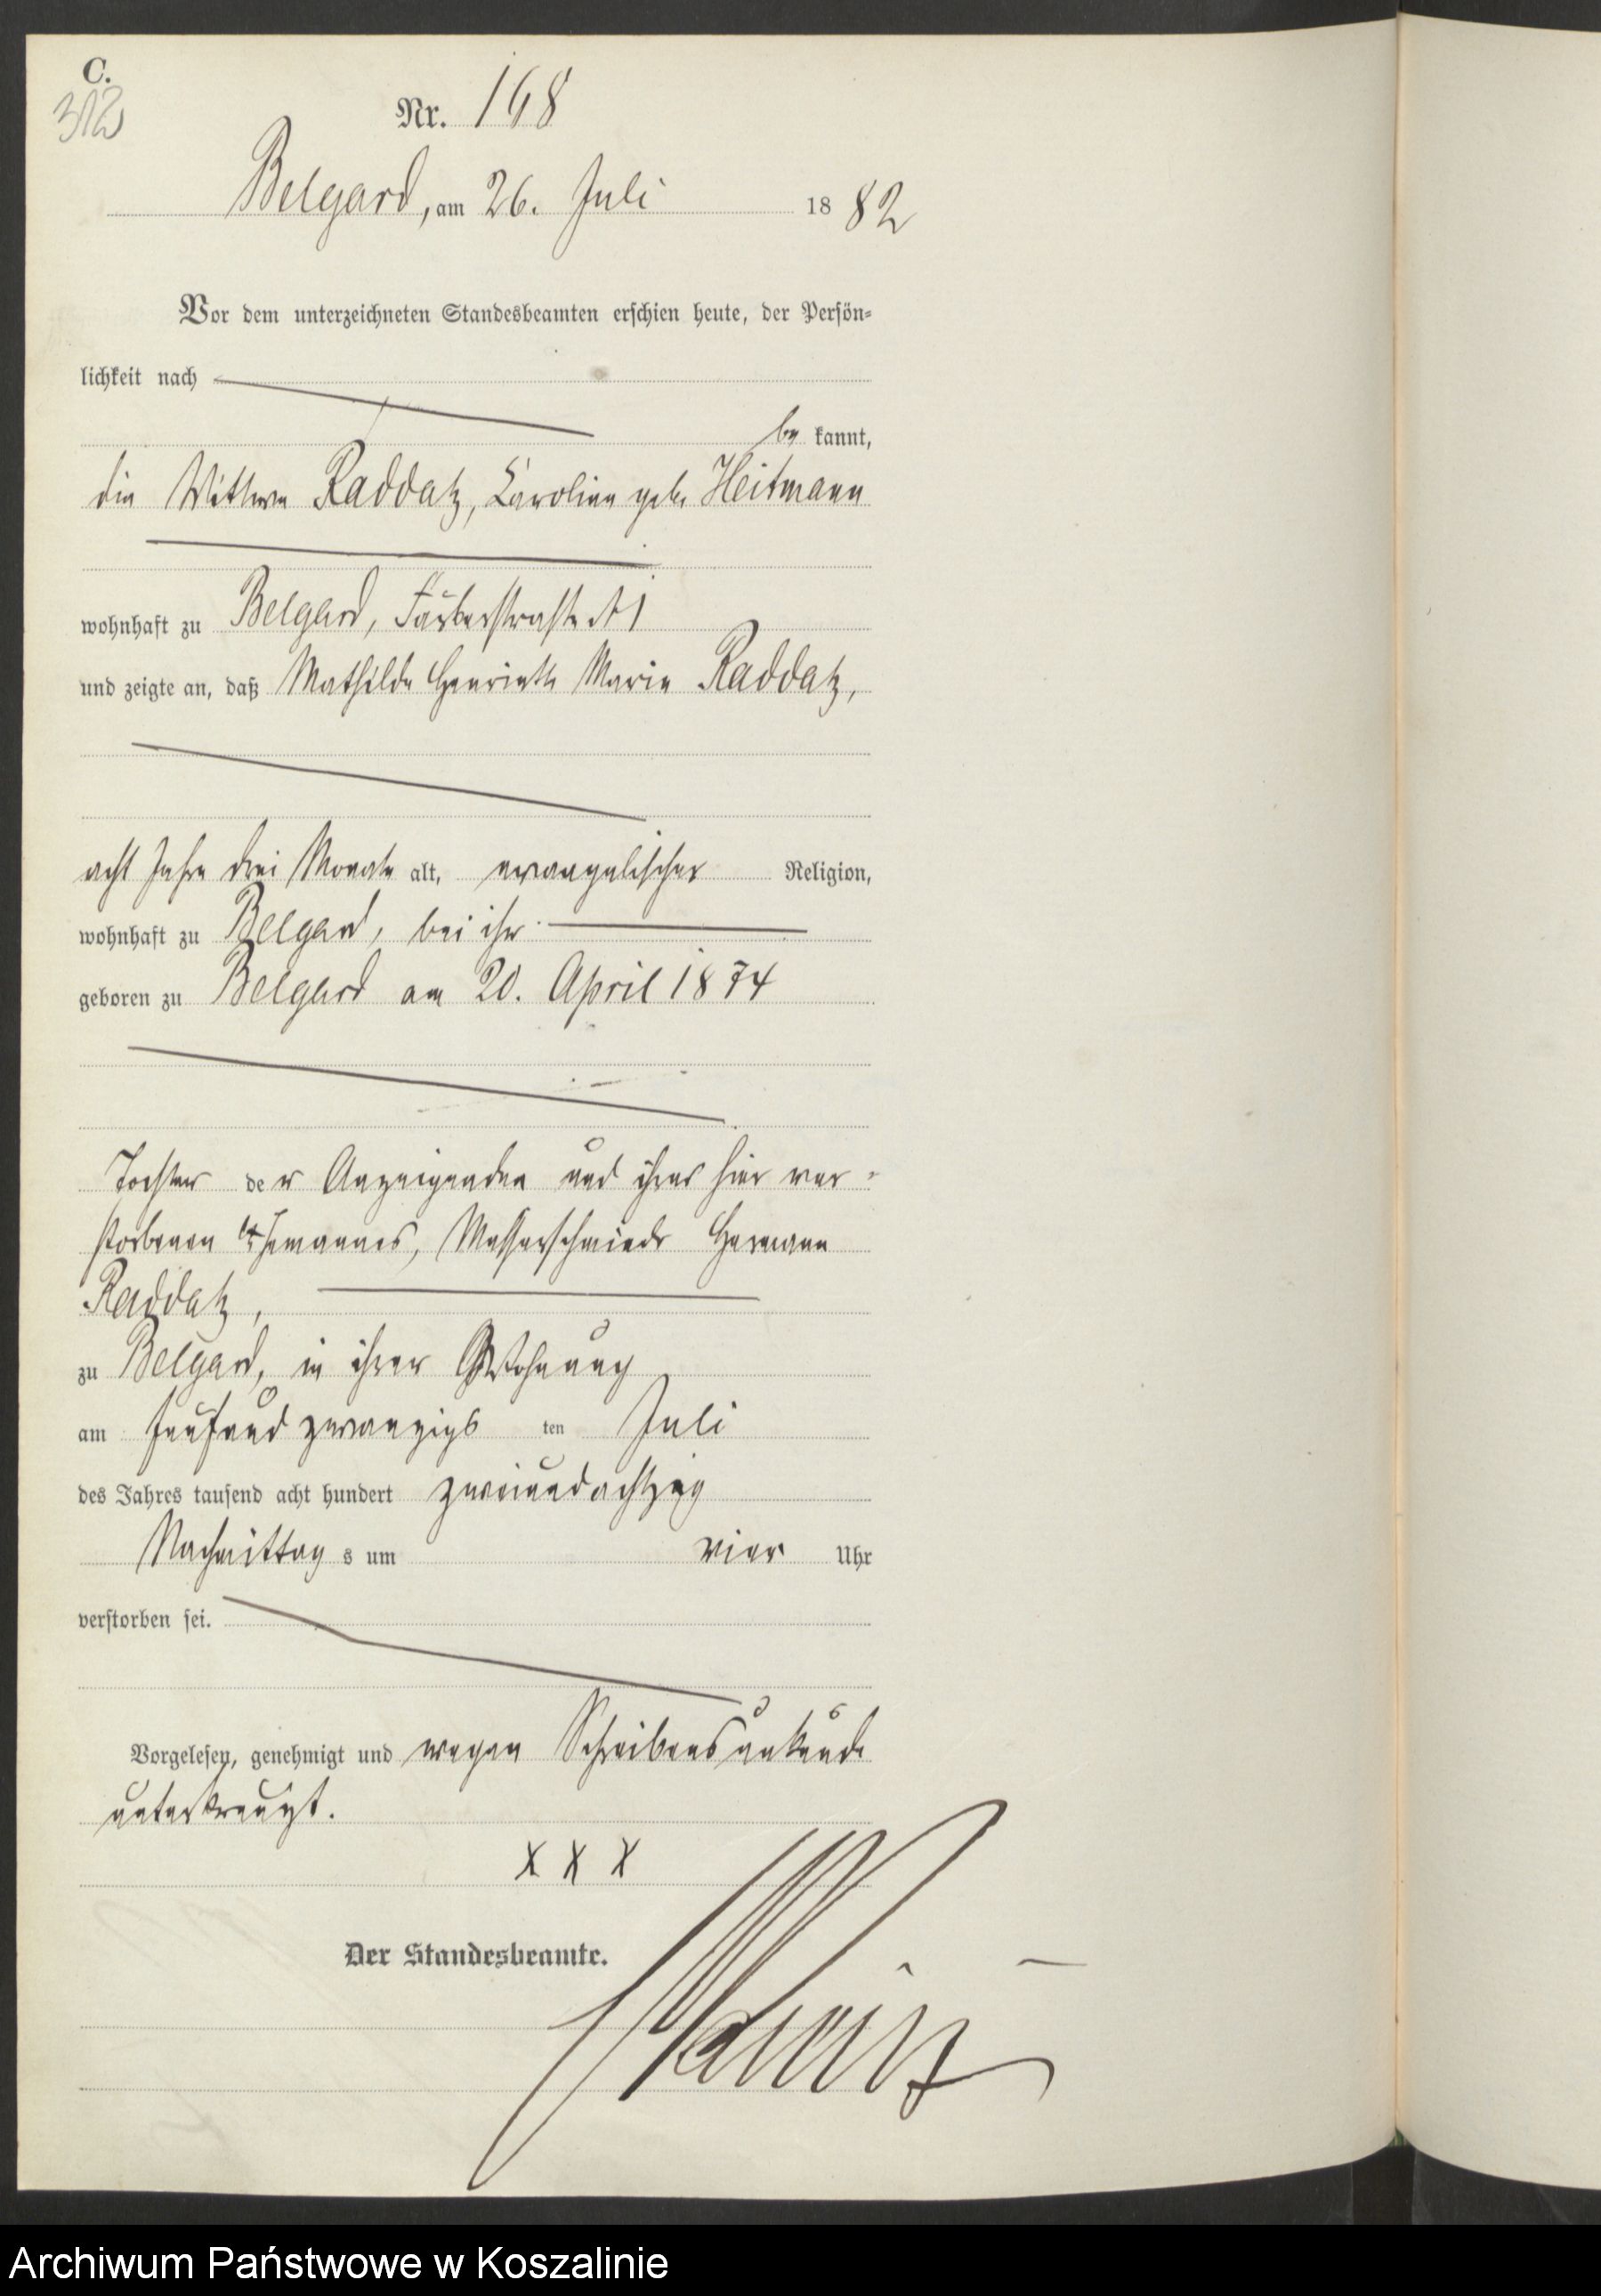 C.
312
Nr. 168
Belgard, am 26. Juli 1882
Vor dem unterzeichneten Standesbeamten erschien heute, der Persön-
lichkeit nach
be kannt,
die Wittwe Raddatz, Caroline geb. Heitmann
wohnhaft zu Belgard, Färberstraße № 1
und zeigte an, daß Mathilde Henriette Marie Raddatz,
acht Jahre drei Monate alt, evangelischer Religion,
wohnhaft zu Belgard, bei ihr
geboren zu Belgard am 20. April 1874
Tochter der Anzeigenden und ihres hier ver-
storbenen Ehemannes, Messerschmieds Hermann
Raddatz,
zu Belgard, in ihrer Wohnung
am fünfundzwanzigs ten Juli
des Jahres tausend acht hundert zweiundachtzig
Nachmittag s um vier Uhr
verstorben sei.
Vorgelesen, genehmigt und wegen Schreibensunkunde
unterkreuzt.
X X X
Der Standesbeamte.
Archiwum Państwowe w Koszalinie